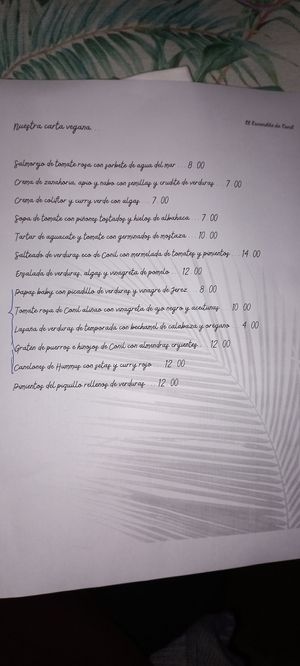 El Escondite de Conil
Nuestra carta vegana...
Salmorejo de tomate rosa con sorbete de agua del mar... 8.00
Crema de zanahoria, apio y nabo con semillas y crudite de verduras... 7.00
Crema de coliflor y curry verde con algas... 7.00
Sopa de tomate con piñones tostados y hielos de albahaca... 7.00
Tartar de aguacate y tomate con germinados de mostaza... 10.00
Salteado de verduras eco de Conil con mermelada de tomates y pimientos... 14.00
Ensalada de verduras, algas y vinagreta de pomelo... 12.00
Papas baby con picadillo de verduras y vinagre de Jerez... 8.00
Tomate rosa de Conil aliñao con vinagreta de ajo negro y aceitunas... 10.00
Lasaña de verduras de temporada con bechamel de calabaza y orégano... 4.00
Gratén de puerros e hinojos de Conil con almendras crujientes... 12.00
Canelones de Hummus con setas y curry rojo... 12.00
Pimientos del piquillo rellenos de verduras... 12.00